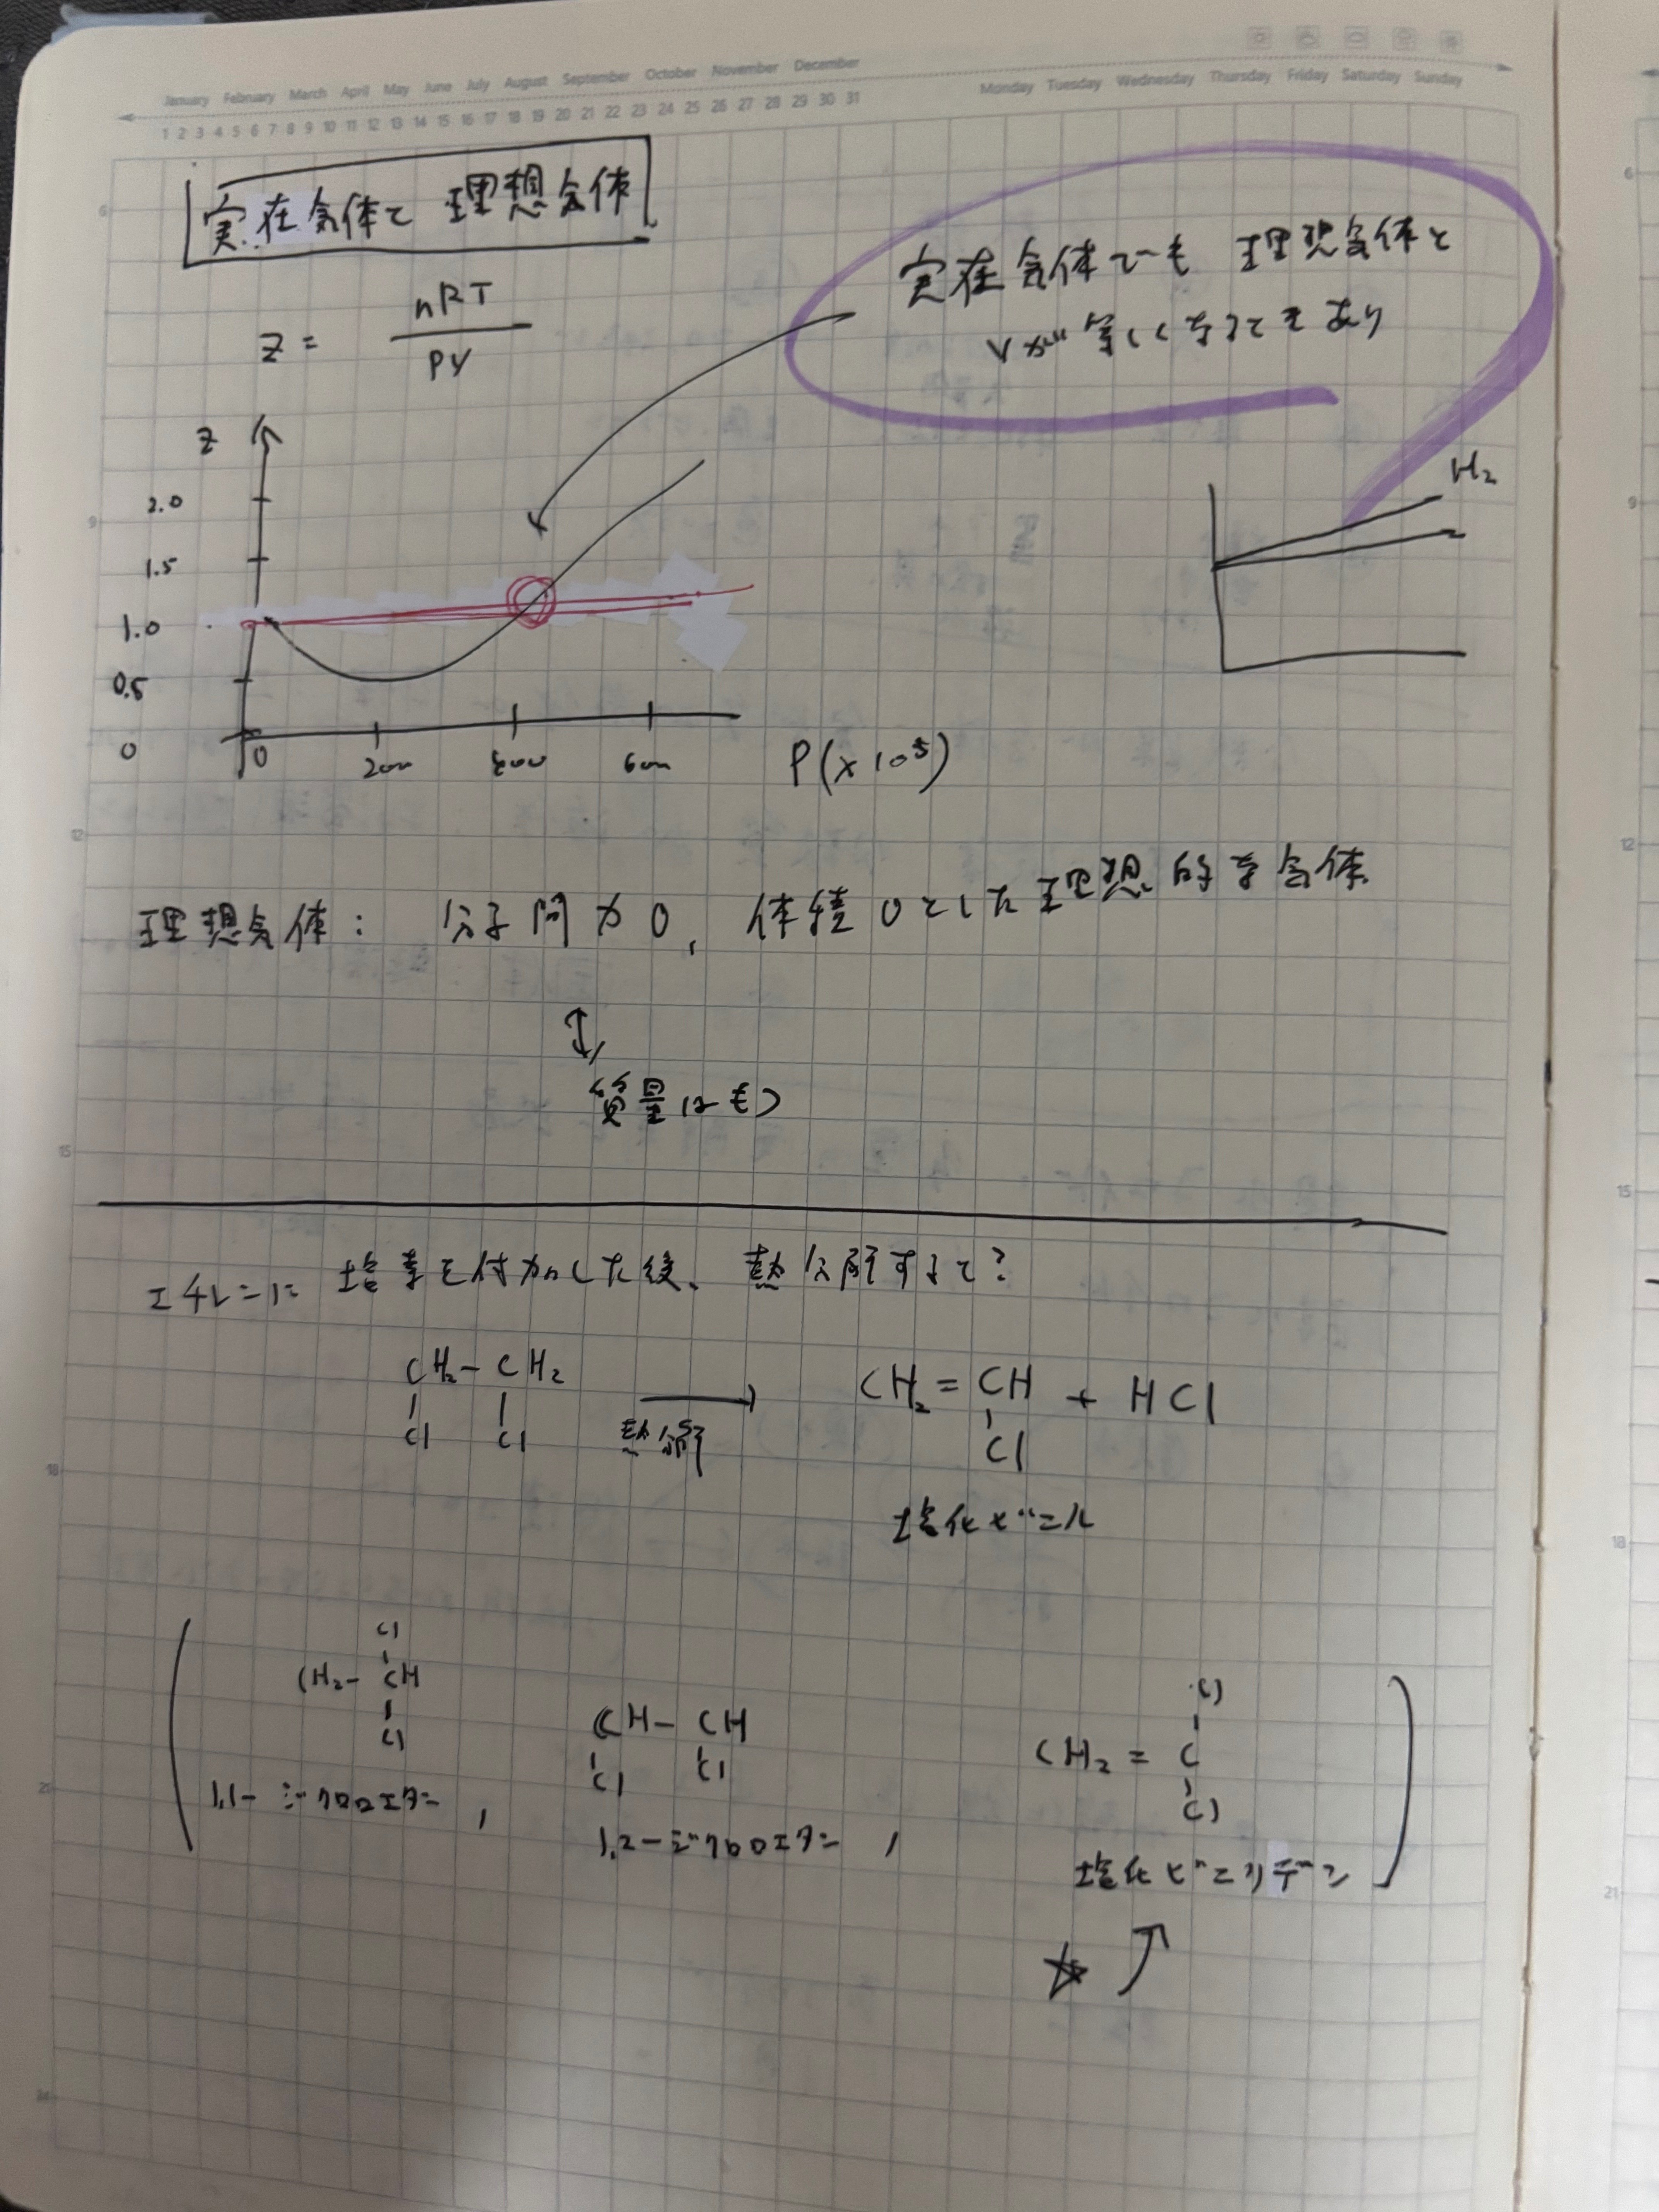 January February March April May June July August September October November December
1 2 3 4 5 6 7 8 9 10 11 12 13 14 15 16 17 18 19 20 21 22 23 24 25 26 27 28 29 30 31
Monday Tuesday Wednesday Thursday Friday Saturday Sunday
実在気体と理想気体
Z = nRT / PV
実在気体でも理想気体と
Vが等しくなるときあり
Z
2.0
1.5
1.0
0.5
0
0 200 400 600
P(×10⁵)
H₂
理想気体: 分子間力0, 体積0とした理想的な気体
↕
質量はもつ
エチレンに塩素を付加した後、熱分解すると?
CH₂-CH₂
Cl Cl
熱分解
→
CH₂=CH + HCl
Cl
塩化ビニル
Cl
CH₂-CH
Cl
1,1-ジクロロエタン,
CH-CH
Cl Cl
1,2-ジクロロエタン,
Cl
CH₂=C
Cl
塩化ビニリデン
☆
6
9
12
15
18
21
24
6
9
12
15
18
21